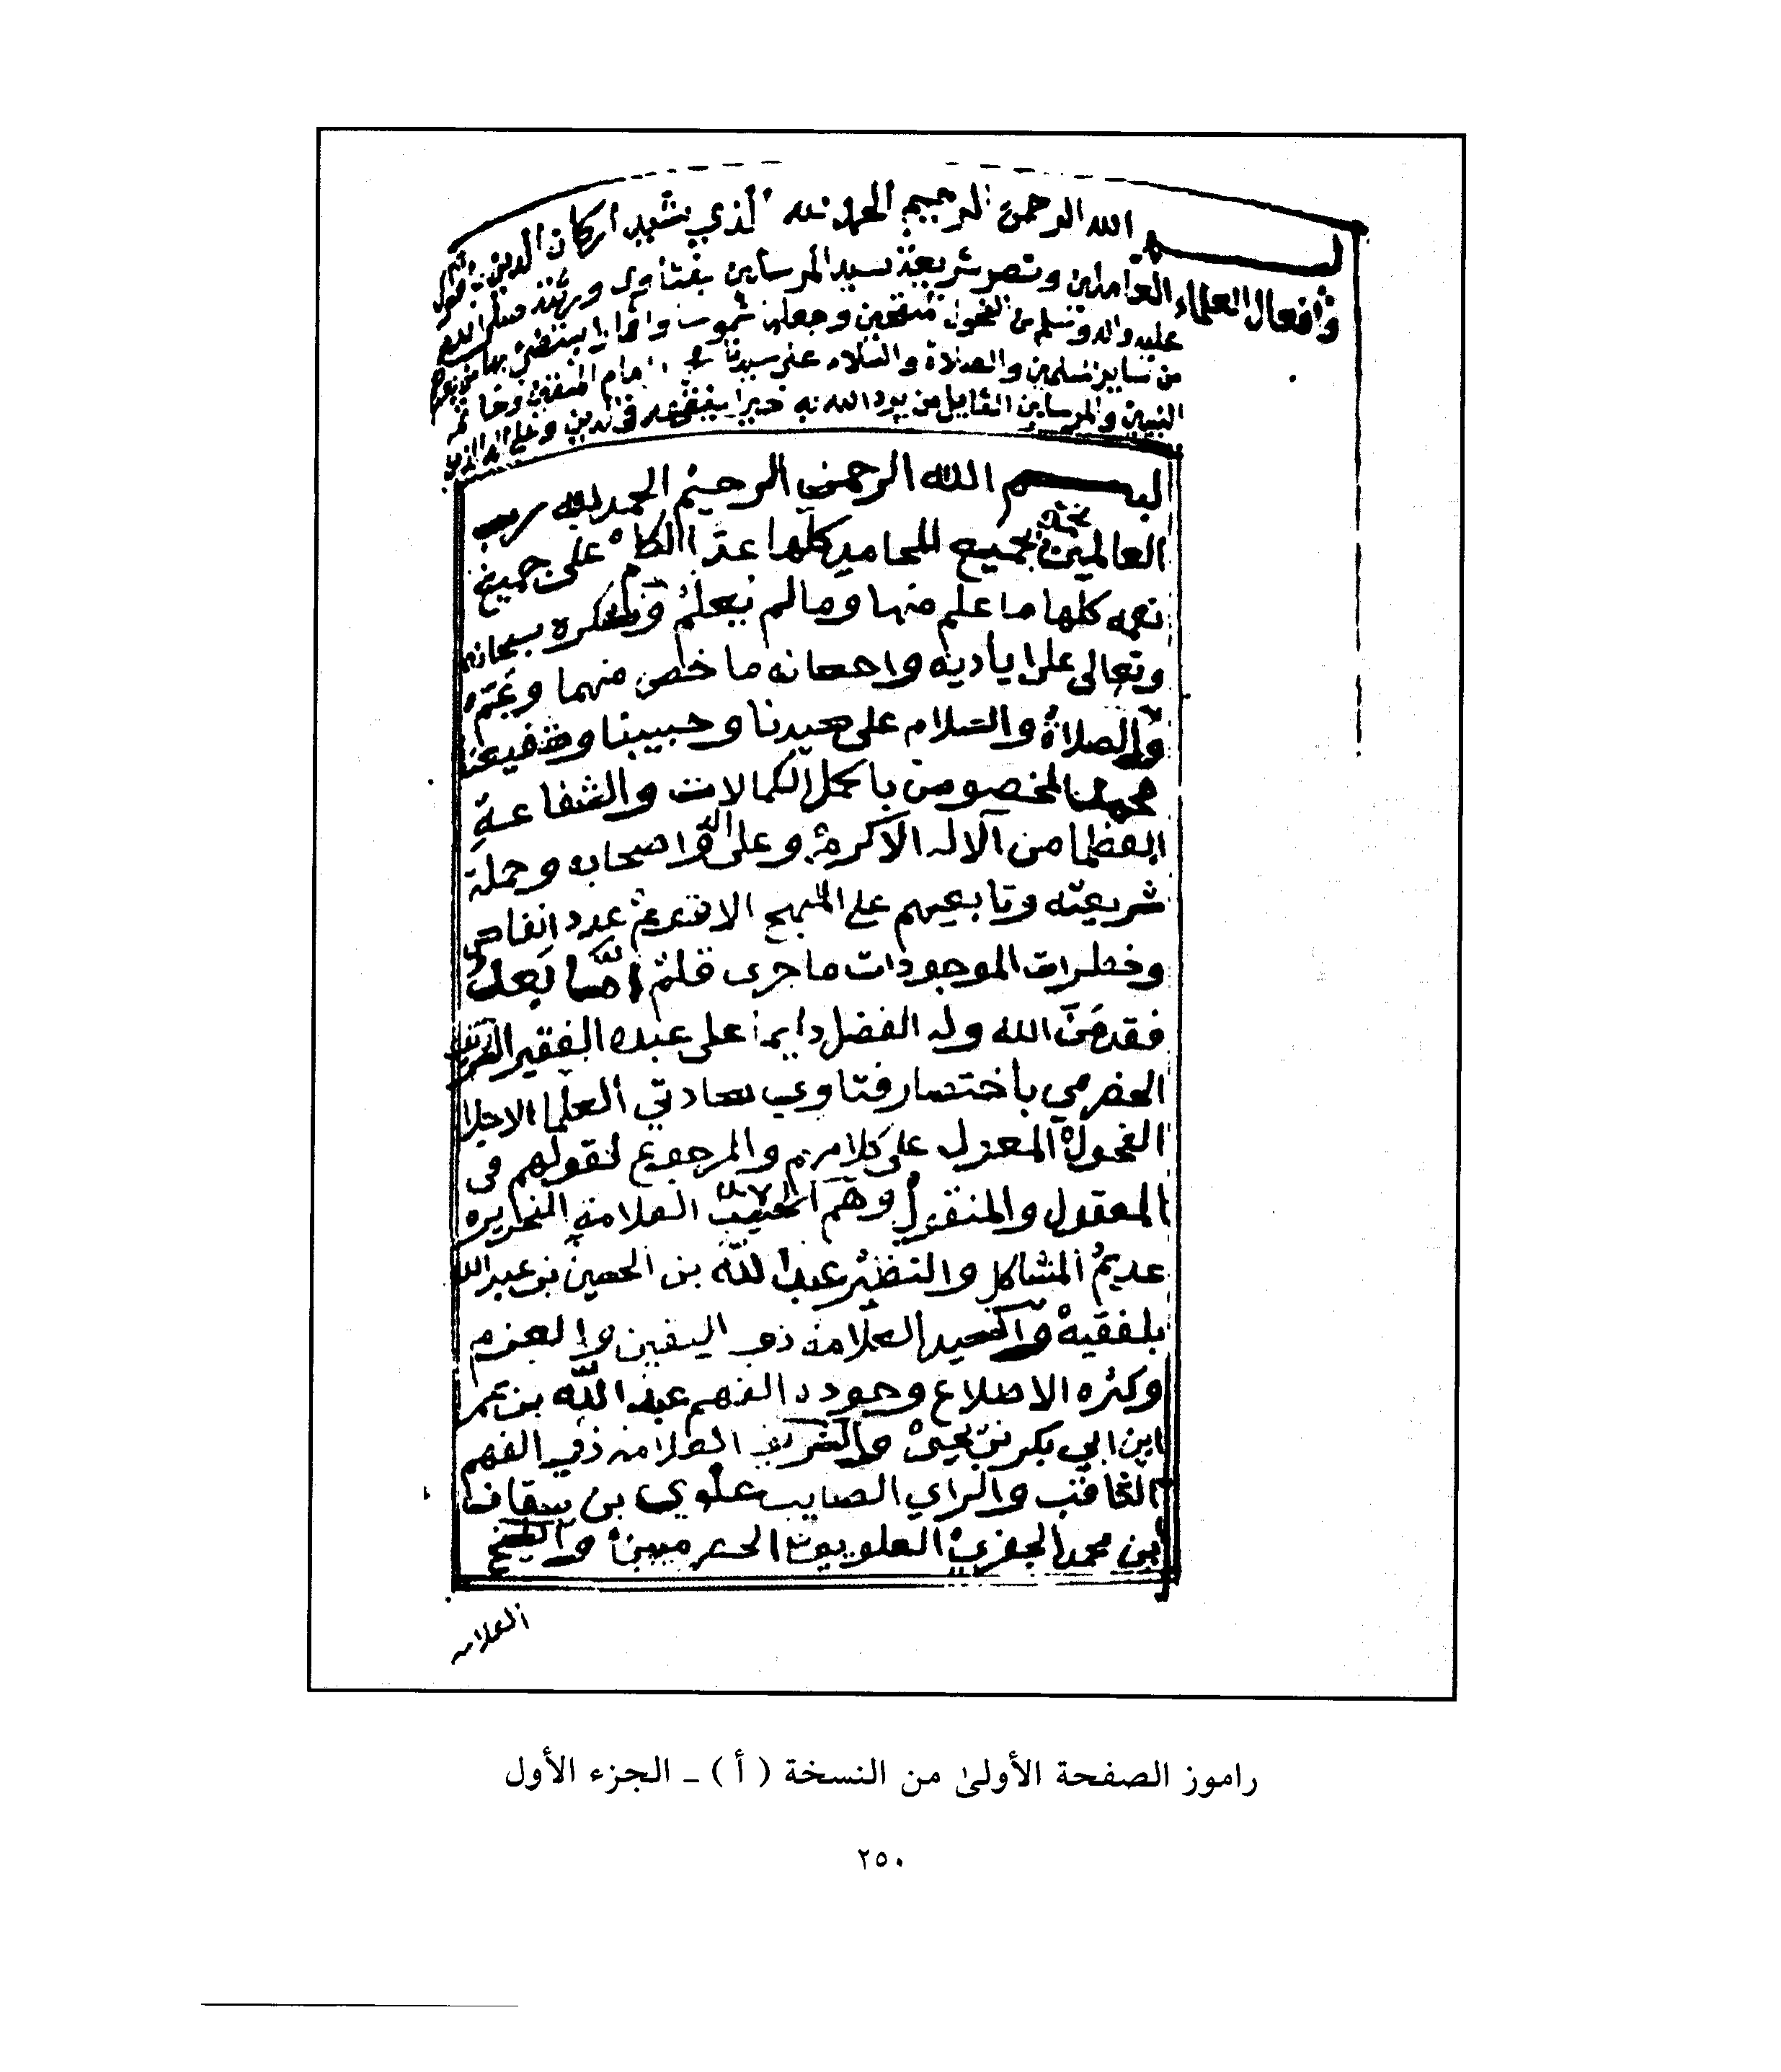 بسم الله الرحمن الرحيم الحمد لله الذي شيد أركان الدين
وأفعال العلماء العاملين ونصر شريعة سيد المرسلين بفتاوى
عليه واله وسلم من الفحول وجعلهم شموسا وأقمارا يستضئ بها
من ساير المسلمين والصلاة والسلام على سيدنا إمام المتقين وخاتم
النبيين والمرسلين القايل من يرد الله به خيرا يفقهه في الدين وعلى اله
بسم الله الرحمن الرحيم الحمد لله رب
العالمين بجميع المحامد كلها عدد الكلم على جميع
نعمه كلها ما علم منها وما لم يعلم ونشكره سبحانه
وتعالى على أياديه واحسانه ما خص منهما وعم
والصلاة والسلام على سيدنا وحبيبنا وشفيعنا
محمد المخصوص باكمل الكمالات والشفاعة
العظما من الاله الاكرم وعلى اله واصحابه وحملة
شريعته وتابعيهم على المنهج الاقوم عدد انفاس
وخطرات الموجودات ما جرى قلم أما بعد
فقد من الله وله الفضل دايما على عبده الفقير
الحضرمي باختصار فتاوي سادتي العلما الاجلا
الفحول المعول على كلامهم والمرجوع لقولهم في
المعقول والمنقول وهم الحبيب العلامة النحرير
عديم المشاكل والنظير عبد الله بن الحسين بن عبد الله
بلفقيه والسيد العلامة ذي اليقين والعزم
وكثرة الاطلاع وجودة الفهم عبد الله بن عمر
ابن ابي بكر بن يحيى والشريف العلامة ذي الفهم
الثاقب والراي الصايب علوي بن سقاف
ابن محمد الجفري العلويون الحضرميين والشيخ
العلامة
راموز الصفحة الأولىٰ من النسخة ( أ ) ـ الجزء الأول
٢٥٠